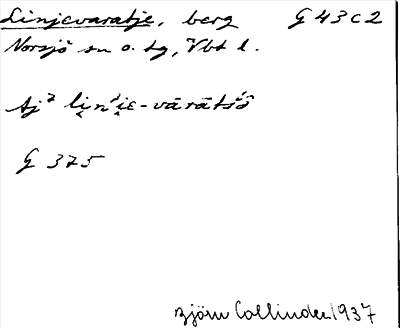 Linjevaratje, berg G 43 c 2
Norsjö sn o. tg, Vbt l.
Aj² li̯n'i̯ɛ-vārātśò
G 375
Björn Collinder 1937